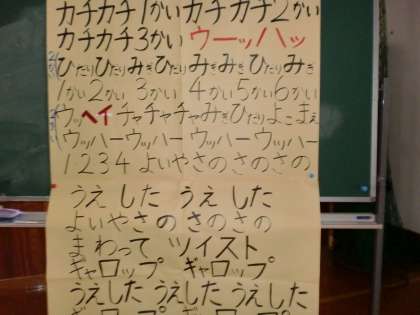 カチカチ1かい カチカチ2かい
カチカチ3かい ウーッハッ
ひだりひだりみぎひだり みぎみぎひだりみぎ
1かい2かい 3かい 4かい5かい6かい
ウッヘイチャチャチャみぎひだりよこまえ
ウッハーウッハー ウッハーウッハー
1 2 3 4 よいやさの さの さの
うえ した うえ した
よいやさの さの さの
まわって ツイスト
ギャロップ ギャロップ
うえした うえした うえした